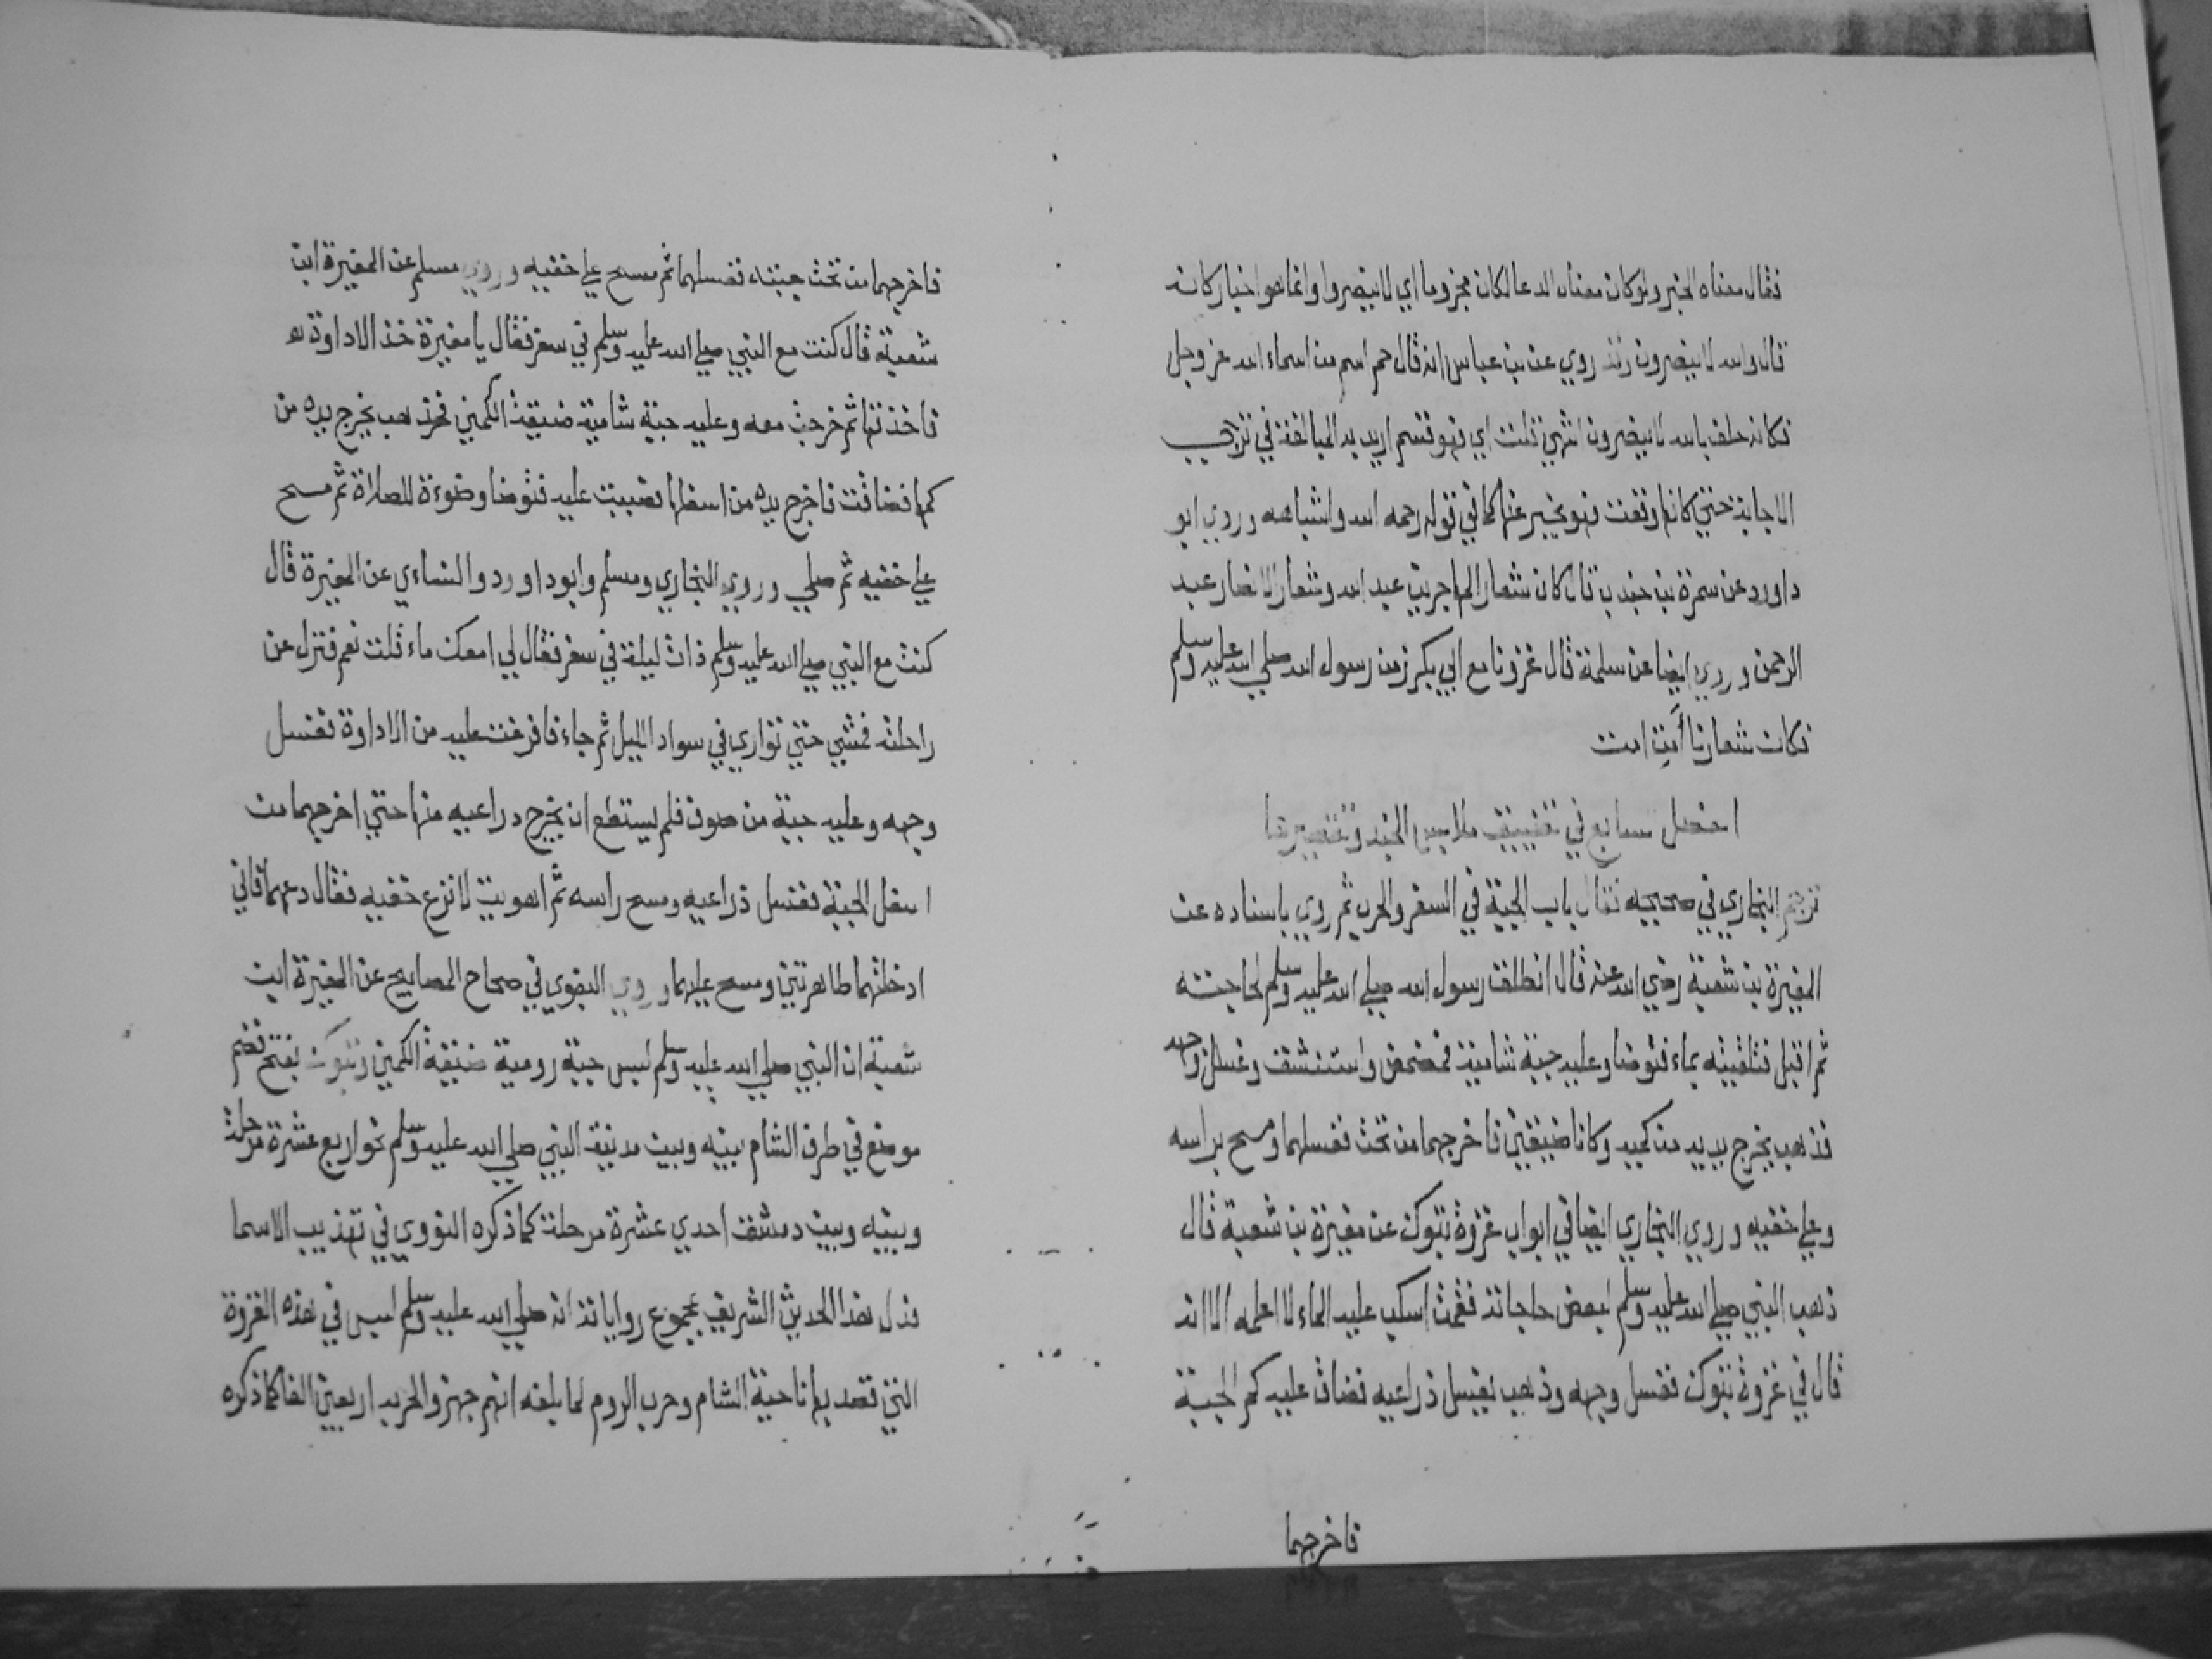 فقال معناه الخبر ولوكان معناه الدعا لكان مجزوما اي لا ينصروا وانما هو اخبار كانه
قال والله لا ينصرون وقد روي عن بن عباس انه قال حم اسم من اسماء الله عز وجل
فكانه حلف بالله لا ينصرون انتهي قلت اي فهو قسم اريد به المبالغة في ترجي
الاجابة حتي كانها وقعت فهو يخبر عنها كما في قوله رحمه الله واشباهه وروي ابو
داوود عن سمرة بن جندب قال كان شعار المهاجرين عبد الله وشعار الانصار عبد
الرحمن وروي ايضا عن سلمة قال غزونا مع ابي بكر زمن رسول الله صلي الله عليه وسلم
فكان شعارنا أَمِت امت
الفصل السابع في تضييق ملابس الجند وتقصيرها
ترجم البخاري في صحيحه فقال باب الجبة في السفر والحرب ثم روي باسناده عن
المغيرة بن شعبة رضي الله عنه قال انطلق رسول الله صلي الله عليه وسلم لحاجته
ثم اقبل فتلقيته بماء فتوضا وعليه جبة شامية فمضمض واستنشق وغسل وجهه
فذهب يخرج يديه من كميه وكانا ضيقين فاخرجهما من تحت فغسلهما ومسح براسه
وعلي خفيه وروي البخاري ايضا في ابواب غزوة تبوك عن مغيرة بن شعبة قال
ذهب النبي صلي الله عليه وسلم لبعض حاجاته فقمت اسكب عليه الماء لا اعلمه الا انه
قال في غزوة تبوك فغسل وجهه وذهب يغسل ذراعيه فضاق عليه كم الجبة
فاخرجهما
فاخرجهما من تحت جبته فغسلهما ثم مسح علي خفيه وروي مسلم عن المغيرة ابن
شعبة قال كنت مع النبي صلي الله عليه وسلم في سفر فقال يا مغيرة خذ الاداوة
فاخذتها ثم خرجت معه وعليه جبة شامية ضيقة الكمين فذهب يخرج يده من
كمها فضاقت فاخرج يده من اسفلها فصببت عليه فتوضا وضوءة للصلاة ثم مسح
علي خفيه ثم صلي وروي البخاري ومسلم وابوداوود والنساءي عن المغيرة قال
كنت مع النبي صلي الله عليه وسلم ذات ليلة في سفر فقال لي امعك ماء قلت نعم فنزل عن
راحلته فمشي حتي تواري في سواد الليل ثم جاء فافرغت عليه من الاداوة فغسل
وجهه وعليه جبة من صوف فلم يستطع ان يخرج دراعيه منها حتي اخرجهما من
اسفل الجبة فغسل ذراعيه ومسح راسه ثم اهويت لانزع خفيه فقال دعهما فاني
ادخلتهما طاهرتين ومسح عليهما وروي البغوي في صحاح المصابيح عن المغيرة ابن
شعبة ان النبي صلي الله عليه وسلم لبس جبة رومية ضيقة الكمين وتبوك بفتح فضم
موضع في طرف الشام بينه وبين مدينة النبي صلي الله عليه وسلم نحو اربع عشرة مرحلة
وبينه وبين دمشق احدي عشرة مرحلة كما ذكره النووي في تهذيب الاسما
فدل هذا الحديث الشريف بمجموع رواياته انه صلي الله عليه وسلم لبس في هذه الغزوة
التي قصد بها ناحية الشام وحرب الروم لما بلغه انهم جهزوا لحربه اربعين الفا كما ذكره